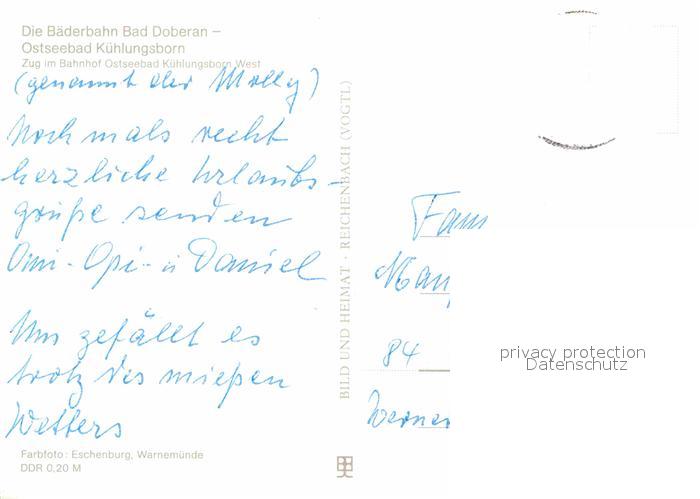 Die Bäderbahn Bad Doberan –
Ostseebad Kühlungsborn
Zug im Bahnhof Ostseebad Kühlungsborn West
(genannt der Molly)
Nochmals recht
herzliche Urlaubs-
grüße senden
Omi-Opi- u Daniel
Uns gefällt es
trotz des mießen
Wetters
Farbfoto: Eschenburg, Warnemünde
DDR 0,20 M
BILD UND HEIMAT · REICHENBACH (VOGTL)
Fam
84
privacy protection
Datenschutz